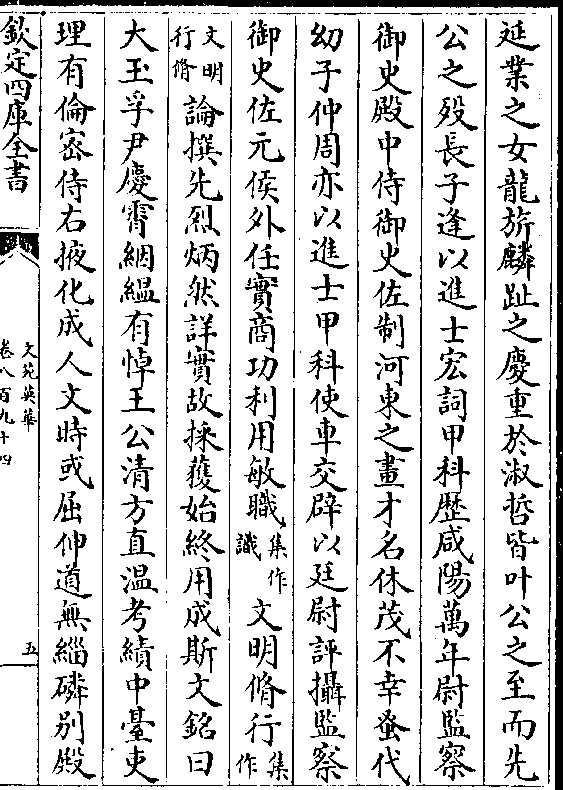 延業之女龍旂麟趾之慶重於淑哲皆叶公之至而先
公之歿長子逢以進士宏詞甲科歷咸陽萬年尉監察
御史殿中侍御史佐制河東之畫才名休茂不幸蚤代
幼子仲周亦以進士甲科使車交辟以廷尉評攝監察
御史佐元侯外任實商功利用敏職集作識文明脩行集作
文明行脩論撰先烈炳然詳實故採蓷始終用成斯文銘曰
大玉孚尹慶霄絪緼有悼王公清方直温考績中臺吏
理有倫密侍右掖化成人文時或屈伸道無緇磷別殿
欽定四庫全書
文苑英華
卷八百九十四
五